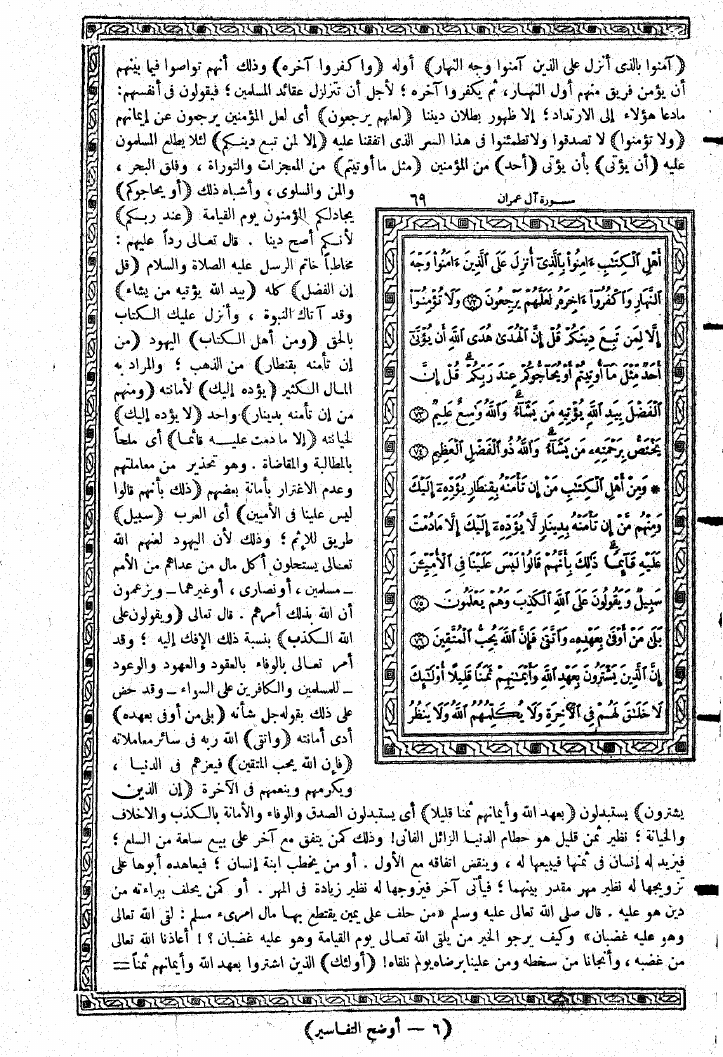 (آمنوا بالذى أنزل على الذين آمنوا وجه النهار) أوله (واكفروا آخره) وذلك أنهم تواصوا فيما بينهم
أن يؤمن فريق منهم أول النهار، ثم يكفروا آخره؛ لأجل أن تتزلزل عقائد المسلمين؛ فيقولون فى أنفسهم:
مادعا هؤلاء إلى الارتداد؛ إلا ظهور بطلان ديننا (لعلهم يرجعون) أى لعل المؤمنين يرجعون عن إيمانهم
(ولا تؤمنوا) لا تصدقوا ولاتطمئنوا فى هذا السر الذى اتفقنا عليه (إلا لمن تبع دينكم) لئلا يطلع المسلمون
عليه (أن يؤتى) بأن يؤتى (أحد) من المؤمنين (مثل ما أوتيتم) من المعجزات والتوراة، وفلق البحر،
والمن والسلوى، وأشباه ذلك (أو يحاجوكم)
يجادلكم المؤمنون يوم القيامة (عند ربكم)
لأنكم أصح دينا. قال تعالى رداً عليهم:
مخاطباً خاتم الرسل عليه الصلاة والسلام (قل
إن الفضل) كله (بيد الله يؤتيه من يشاء)
وقد آتاك النبوة، وأنزل عليك الكتاب
بالحق (ومن أهل الكتاب) اليهود (من
إن تأمنه بقنطار) من الذهب؛ والمراد به
المال الكثير (يؤده إليك) لأمانته (ومنهم
من إن تأمنه بدينار) واحد (لا يؤده إليك)
لخيانته (إلا ما دمت عليه قائما) أى ملحاً
بالمطالبة والمقاضاة. وهو تحذير من معاملتهم
وعدم الاغترار بأمانة بعضهم (ذلك بأنهم قالوا
ليس علينا فى الأميين) أى العرب (سبيل)
طريق للإثم؛ وذلك لأن اليهود لعنهم الله
تعالى يستحلون أكل مال من عداهم من الأمم
ـ مسلمين، أو نصارى، أوغيرهما ـ ويزعمون
أن الله بذلك أمرهم. قال تعالى (ويقولون على
الله الكذب) بنسبة ذلك الإفك إليه؛ وقد
أمر تعالى بالوفاء بالعقود والعهود والوعود
ـ للمسلمين والكافرين على السواء ـ وقد حض
على ذلك بقوله جل شأنه (بلى من أوفى بعهده)
أدى أمانته (واتقى) الله ربه فى سائر معاملاته
(فإن الله يحب المتقين) فيعزهم فى الدنيا،
ويكرمهم وينعمهم فى الآخرة (إن الذين
سورة آل عمران ٦٩
أَهْلِ ٱلْكِتَٰبِ ءَامِنُوا۟ بِٱلَّذِىٓ أُنزِلَ عَلَى ٱلَّذِينَ ءَامَنُوا۟ وَجْهَ
ٱلنَّهَارِ وَٱكْفُرُوٓا۟ ءَاخِرَهُۥ لَعَلَّهُمْ يَرْجِعُونَ ﴿٧٢﴾ وَلَا تُؤْمِنُوٓا۟
إِلَّا لِمَن تَبِعَ دِينَكُمْ قُلْ إِنَّ ٱلْهُدَىٰ هُدَى ٱللَّهِ أَن يُؤْتَىٰٓ
أَحَدٌ مِّثْلَ مَآ أُوتِيتُمْ أَوْ يُحَآجُّوكُمْ عِندَ رَبِّكُمْ ۗ قُلْ إِنَّ
ٱلْفَضْلَ بِيَدِ ٱللَّهِ يُؤْتِيهِ مَن يَشَآءُ ۗ وَٱللَّهُ وَٰسِعٌ عَلِيمٌ ﴿٧٣﴾
يَخْتَصُّ بِرَحْمَتِهِۦ مَن يَشَآءُ ۗ وَٱللَّهُ ذُو ٱلْفَضْلِ ٱلْعَظِيمِ ﴿٧٤﴾
* وَمِنْ أَهْلِ ٱلْكِتَٰبِ مَنْ إِن تَأْمَنْهُ بِقِنطَارٍ يُؤَدِّهِۦٓ إِلَيْكَ
وَمِنْهُم مَّنْ إِن تَأْمَنْهُ بِدِينَارٍ لَّا يُؤَدِّهِۦٓ إِلَيْكَ إِلَّا مَا دُمْتَ
عَلَيْهِ قَآئِمًا ۗ ذَٰلِكَ بِأَنَّهُمْ قَالُوا۟ لَيْسَ عَلَيْنَا فِى ٱلْأُمِّيِّـۧنَ
سَبِيلٌ وَيَقُولُونَ عَلَى ٱللَّهِ ٱلْكَذِبَ وَهُمْ يَعْلَمُونَ ﴿٧٥﴾
بَلَىٰ مَنْ أَوْفَىٰ بِعَهْدِهِۦ وَٱتَّقَىٰ فَإِنَّ ٱللَّهَ يُحِبُّ ٱلْمُتَّقِينَ ﴿٧٦﴾
إِنَّ ٱلَّذِينَ يَشْتَرُونَ بِعَهْدِ ٱللَّهِ وَأَيْمَٰنِهِمْ ثَمَنًا قَلِيلًا أُو۟لَٰٓئِكَ
لَا خَلَٰقَ لَهُمْ فِى ٱلْءَاخِرَةِ وَلَا يُكَلِّمُهُمُ ٱللَّهُ وَلَا يَنظُرُ
يشترون) يستبدلون (بعهد الله وأيمانهم ثمنا قليلا) أى يستبدلون الصدق والوفاء والأمانة بالكذب والاخلاف
والخيانة؛ نظير ثمن قليل هو حطام الدنيا الزائل الفانى! وذلك كمن يتفق مع آخر على بيع سلعة من السلع؛
فيزيد له إنسان فى ثمنها فيبيعها له، وينقض اتفاقه مع الأول. أو من يخطب ابنة إنسان؛ فيعاهده أبوها على
تزويجها له نظير مهر مقدر بينهما؛ فيأتى آخر فيزوجها له نظير زيادة فى المهر. أو كمن يحلف ببراءته من
دين هو عليه. قال صلى الله تعالى عليه وسلم «من حلف على يمين يقتطع بها مال امرىء مسلم: لقى الله تعالى
وهو عليه غضبان» وكيف يرجو الخير من يلقى الله تعالى يوم القيامة وهو عليه غضبان؟! أعاذنا الله تعالى
من غضبه، وأنجانا من سخطه ومن علينا برضاه يوم نلقاه! (أولئك) الذين اشتروا بعهد الله وأيمانهم ثمناً =
(٦ — أوضح التفاسير)